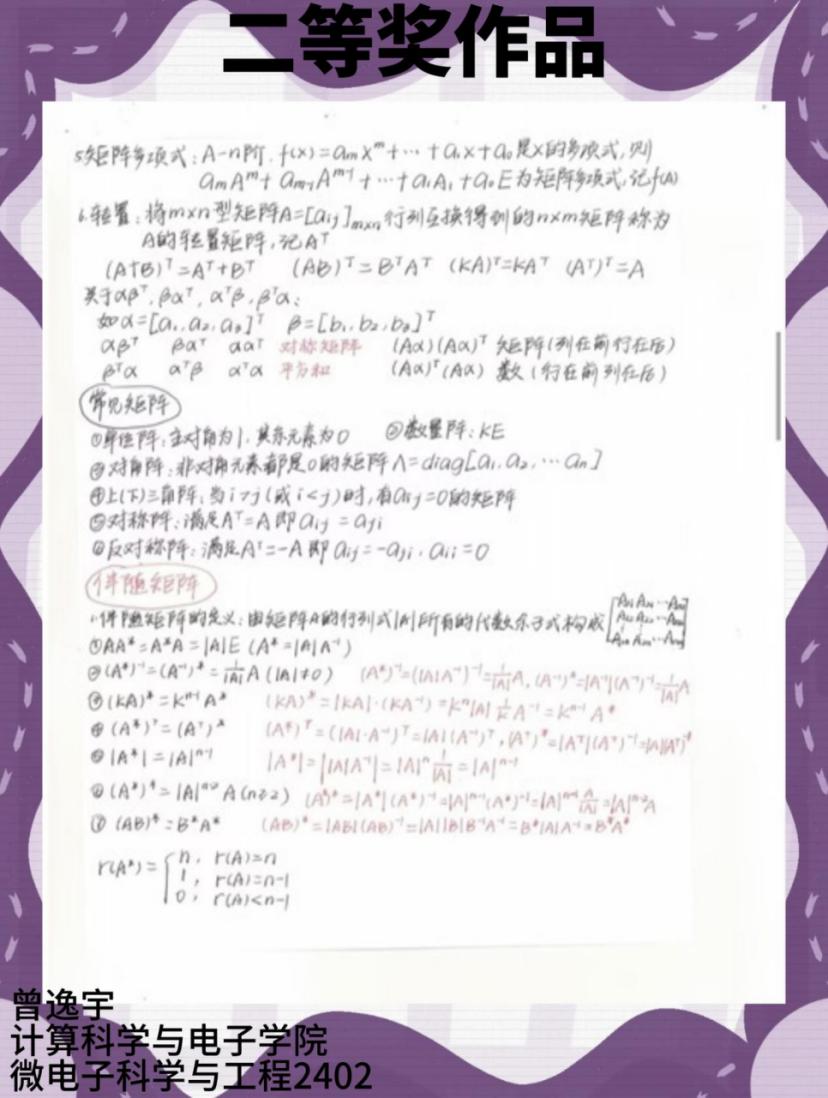 二等奖作品
5矩阵多项式：A-n阶. f(x)=aₘxᵐ+…+a₁x+a₀是x的多项式,则
aₘAᵐ+aₘ₋₁Aᵐ⁻¹+…+a₁A₁+a₀E为矩阵多项式,记f(A)
6.转置：将m×n型矩阵A=[aᵢⱼ]ₘₓₙ行列互换得到的n×m矩阵称为
A的转置矩阵,记Aᵀ
(A+B)ᵀ=Aᵀ+Bᵀ (AB)ᵀ=BᵀAᵀ (kA)ᵀ=kAᵀ (Aᵀ)ᵀ=A
关于αβᵀ, βαᵀ, αᵀβ, βᵀα：
如α=[a₁,a₂,a₃]ᵀ β=[b₁,b₂,b₃]ᵀ
αβᵀ βαᵀ ααᵀ 对称矩阵 (Aα)(Aα)ᵀ 矩阵(列在前行在后)
βᵀα αᵀβ αᵀα 平方和 (Aα)ᵀ(Aα) 数(行在前列在后)
常见矩阵
①单位阵：主对角为1,其余元素为0 ②数量阵：kE
③对角阵：非对角元素都是0的矩阵Λ=diag[a₁,a₂,…aₙ]
④上(下)三角阵：当i>j(或i<j)时,有aᵢⱼ=0的矩阵
⑤对称阵：满足Aᵀ=A即aᵢⱼ=aⱼᵢ
⑥反对称阵：满足Aᵀ=-A即aᵢⱼ=-aⱼᵢ, aᵢᵢ=0
伴随矩阵
1.伴随矩阵的定义：由矩阵A的行列式|A|所有的代数余子式构成
①AA*=A*A=|A|E (A*=|A|A⁻¹)
②(A*)⁻¹=(A⁻¹)*=1/|A| A (|A|≠0) (A*)⁻¹=(|A|A⁻¹)⁻¹=1/|A| A, (A⁻¹)*=|A⁻¹|(A⁻¹)⁻¹=1/|A| A
③(kA)*=kⁿ⁻¹A* (kA)*=|kA|·(kA⁻¹)=kⁿ|A| 1/k A⁻¹=kⁿ⁻¹A*
④(A*)ᵀ=(Aᵀ)* (A*)ᵀ=(|A|·A⁻¹)ᵀ=|A|(A⁻¹)ᵀ, (Aᵀ)*=|Aᵀ|(Aᵀ)⁻¹=|A|(Aᵀ)⁻¹
⑤|A*|=|A|ⁿ⁻¹ |A*|=||A|A⁻¹|=|A|ⁿ 1/|A|=|A|ⁿ⁻¹
⑥(A*)*=|A|ⁿ⁻²A(n≥2) (A*)*=|A*|(A*)⁻¹=|A|ⁿ⁻¹(A*)⁻¹=|A|ⁿ⁻¹ A/|A|=|A|ⁿ⁻²A
⑦(AB)*=B*A* (AB)*=|AB|(AB)⁻¹=|A||B|B⁻¹A⁻¹=B*|A|A⁻¹=B*A*
r(A*)={n, r(A)=n
1, r(A)=n-1
0, r(A)<n-1
曾逸宇
计算科学与电子学院
微电子科学与工程2402